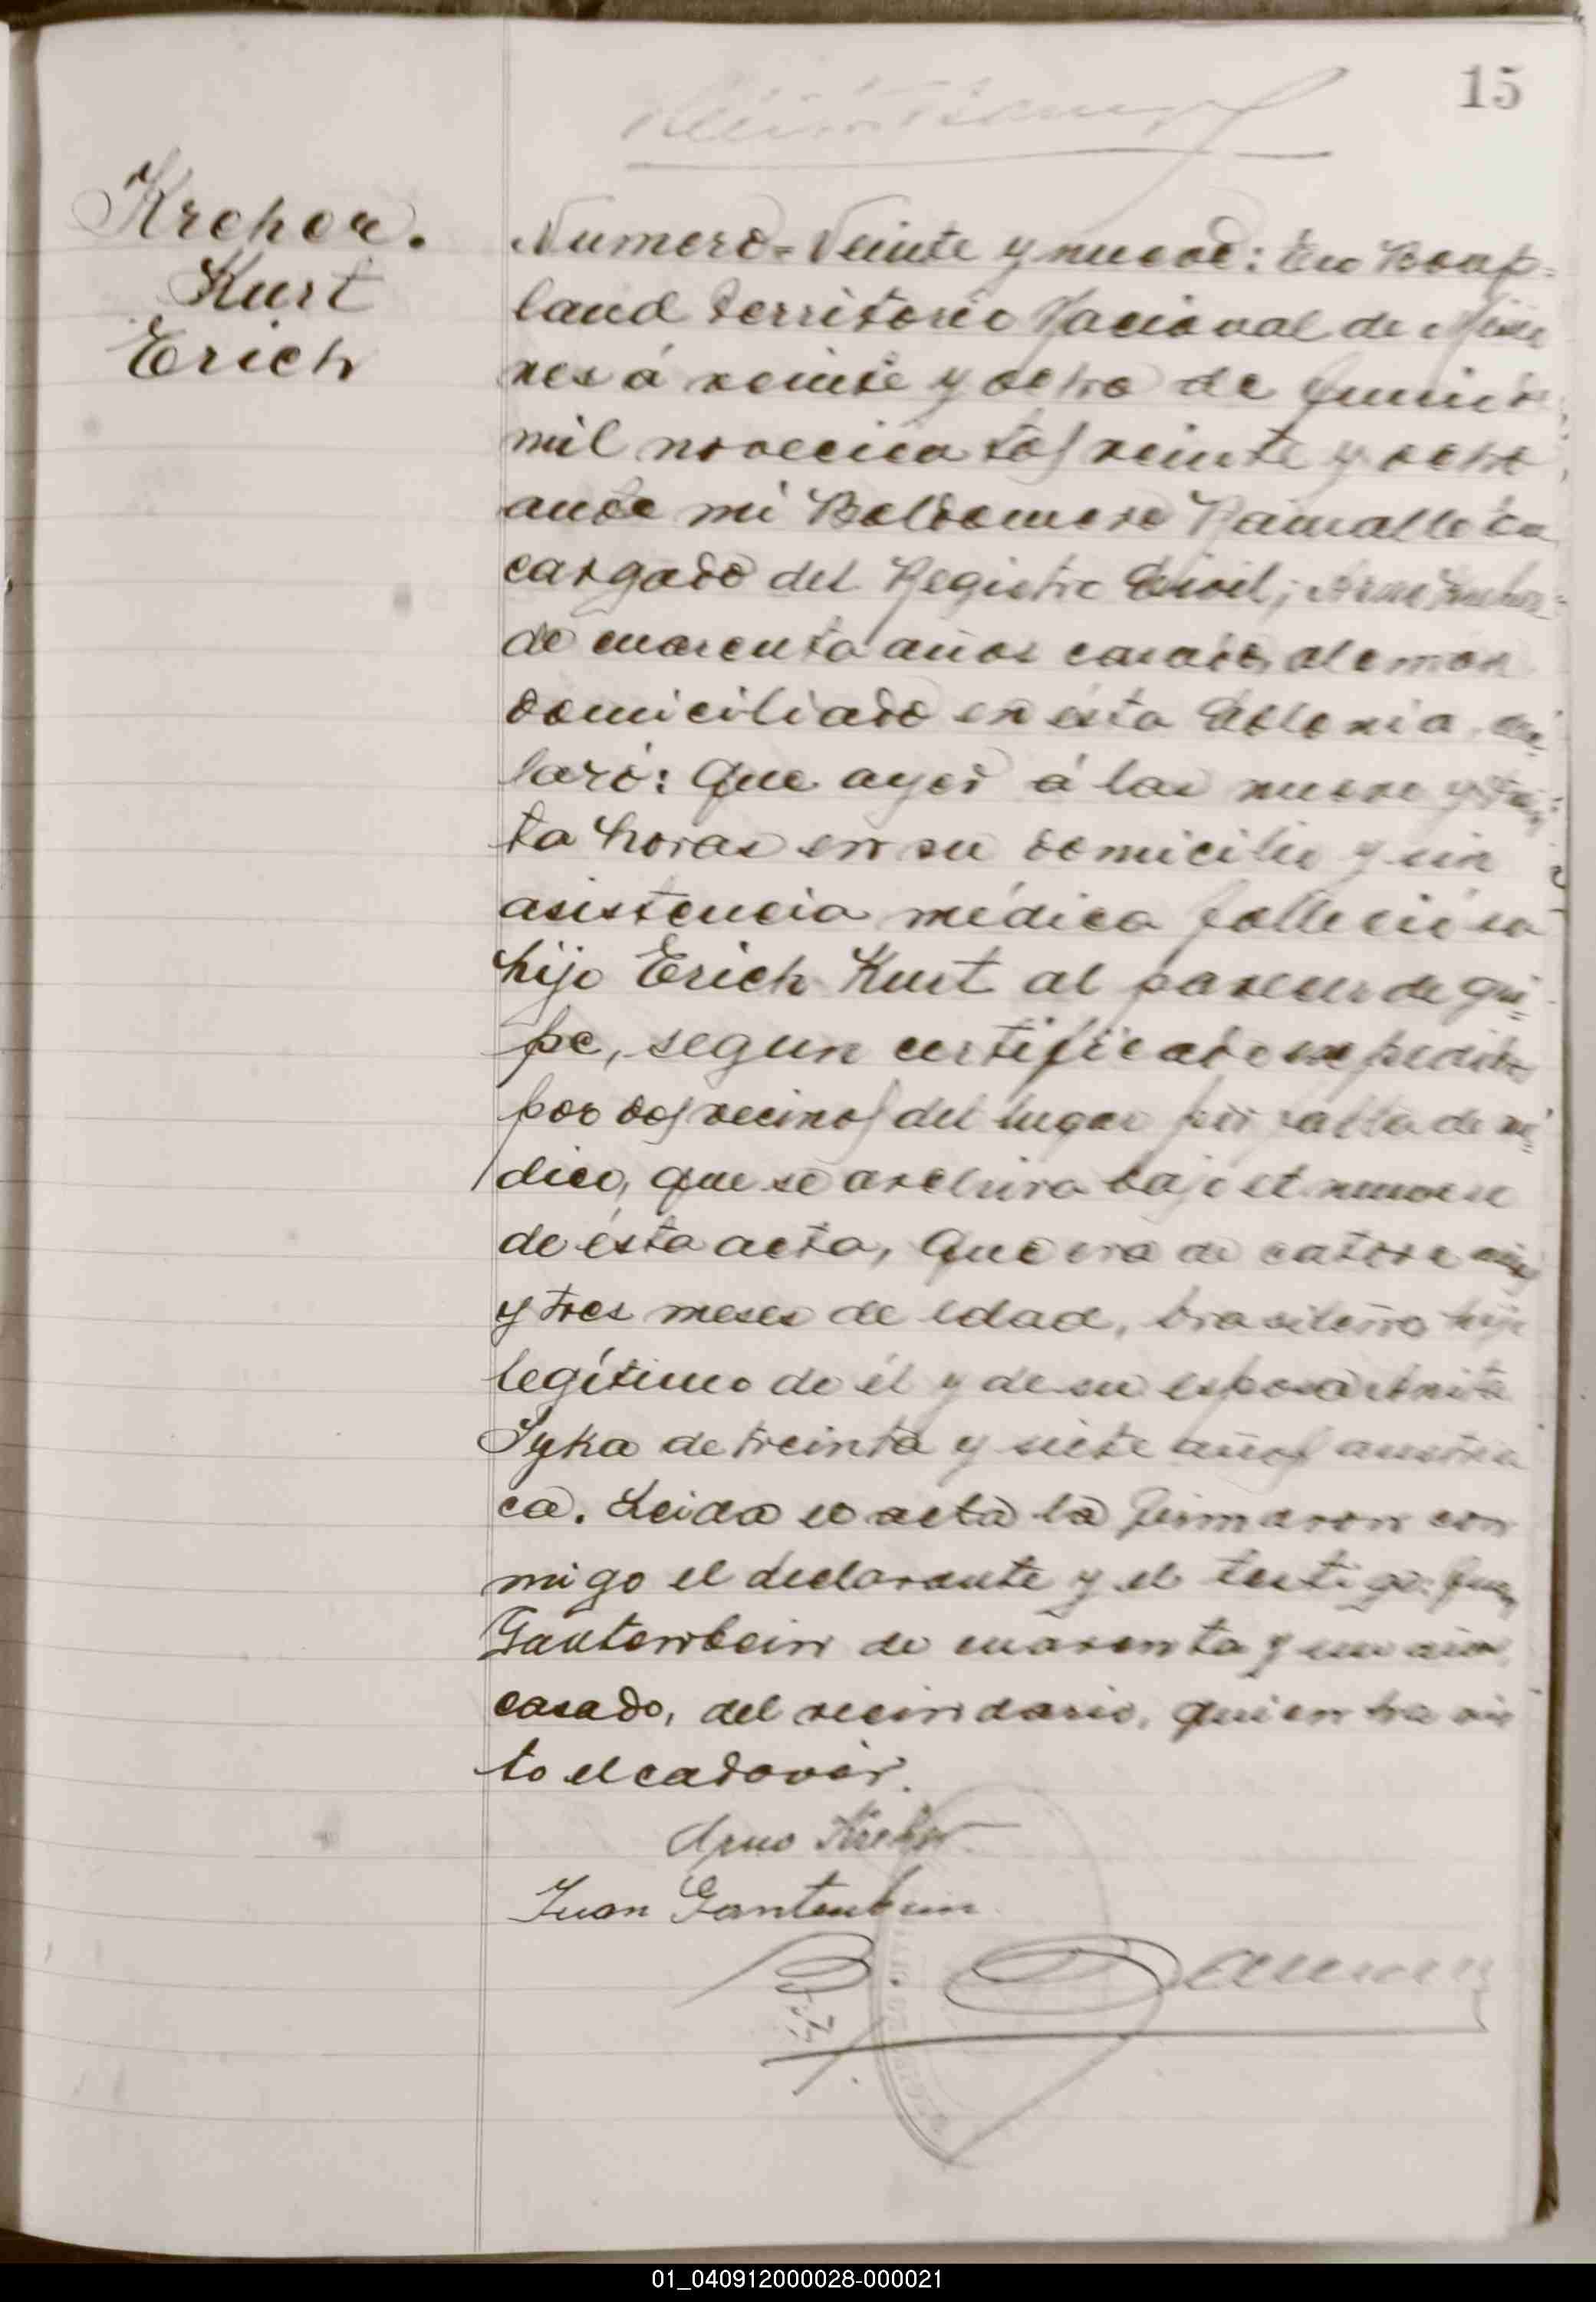 15
Kreher.
Kurt
Erich
Numero= Veinte y nueve: En Bonp=
land Territorio Nacional de Misio
nes á veinte y ocho de Junio de
mil novecientos veinte y ocho,
ante mi Baldomero Ramallo En
cargado del Registro Civil; Arno Kreher=
de cuarenta años casado, aleman
domiciliado en ésta Colonia, dec=
laró: Que ayer á las nueve y trein=
ta horas en su domicilio y sin
asistencia médica falleció su
hijo Erich Kurt al parecer de gri=
pe, segun certificado expedido
por dos vecinos del lugar por falta de mé=
dico, que se archiva bajo el numero
de ésta acta, Que era de catorce años
y tres meses de edad, brasilero hijo
legítimo de él y de su esposa Anita
Syka de treinta y siete años austria
ca. Leida el acta la firmaron con
migo el declarante y el testigo: Juan
Gantenbein de cuarenta y un años
casado, del vecindario, quien ha vis
to el cadaver.
Arno Kreher
Juan Gantenbein
01_040912000028-000021